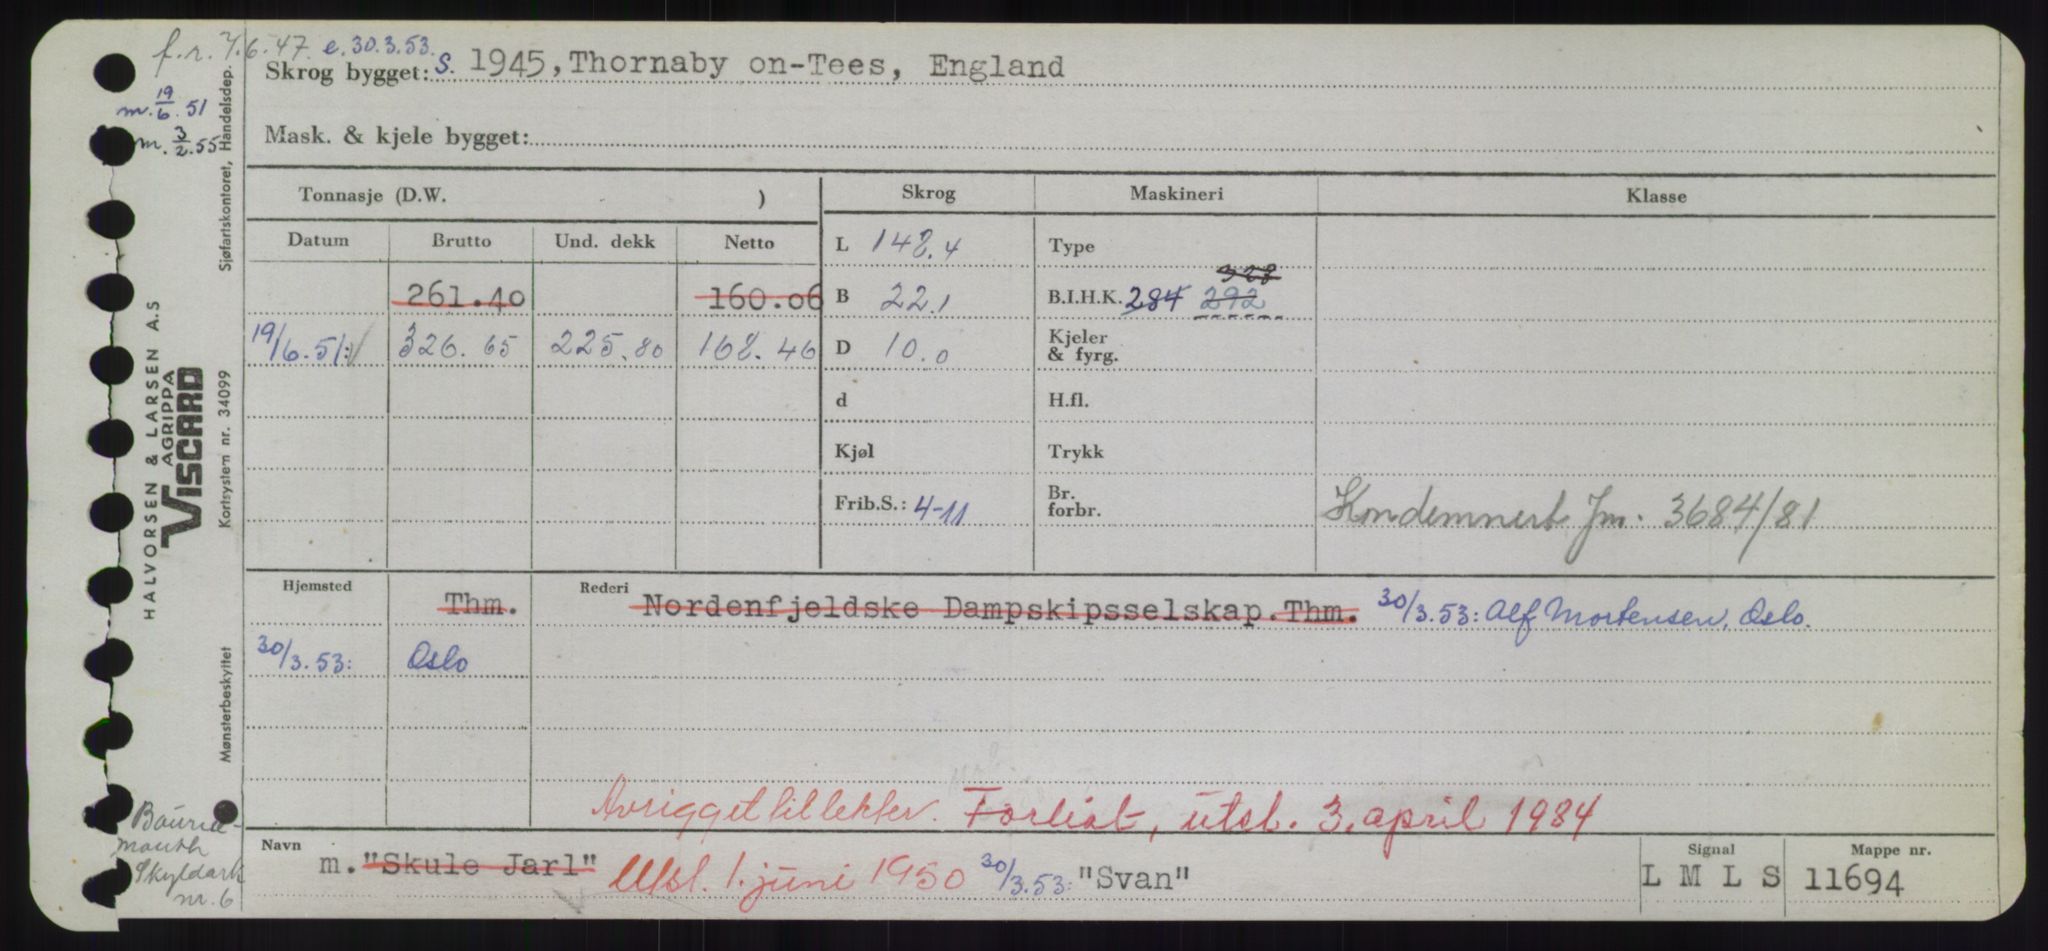 f.r. 7.6.47. e. 30.3.53.
Skrog bygget: S. 1945, Thornaby on-Tees, England
m. 19/6.51
m. 3/2.55
Mask. & kjele bygget:
Sjøfartskontoret, Handelsdep.
HALVORSEN & LARSEN A.S
AGRIPPA
VISCARD
Kortsystem nr. 34099
Mønsterbeskyttet
Tonnasje (D.W. ) Skrog Maskineri Klasse
Datum Brutto Und. dekk Netto L 148.4 Type
328
261.40 160.06 B 22.1 B.I.H.K. 284 292
19/6.51: 326.65 225.80 168.46 D 10.0 Kjeler & fyrg.
d H.fl.
Kjøl Trykk
Frib.S.: 4-11 Br. forbr. Kondemnert Jm. 3684/81
Hjemsted Thm. Rederi Nordenfjeldske Dampskipsselskap. Thm. 30/3.53: Alf Mortensen, Oslo.
30/3.53: Oslo
Avrigget til lekter. Forlist, utsl. 3. april 1984
mouth
Skyldark
nr. 6
Navn m. "Skule Jarl" Utsl. 1. juni 1950 30/3.53: "Svan" Signal L M L S Mappe nr. 11694